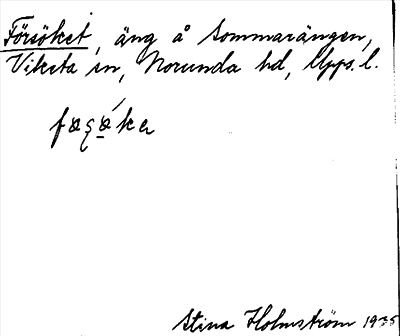 Försöket, äng å Sommarängen,
Viksta sn, Norunda hd, Upps. l.
Stina Holmström 1935